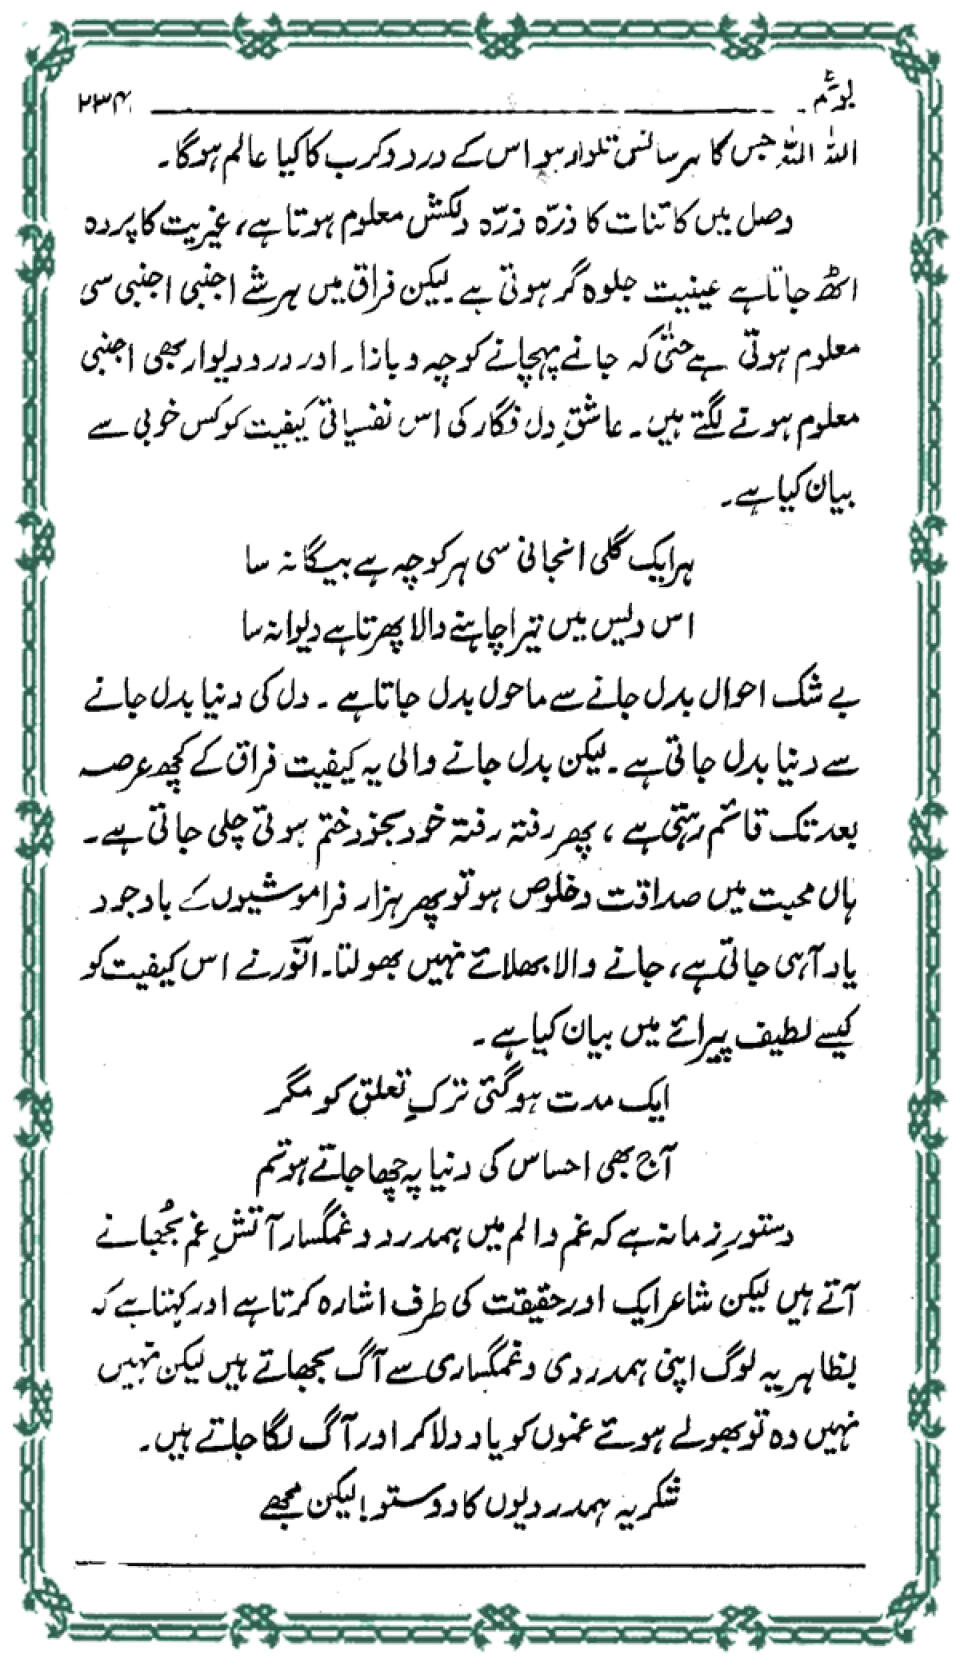 ۲۳۴
اللہ اللہ جس کا ہر سانس تلوار ہو اس کے درد و کرب کا کیا عالم ہوگا۔
وصل میں کائنات کا ذرّہ ذرّہ دلکش معلوم ہوتا ہے، غیریت کا پردہ
اٹھ جاتا ہے عینیت جلوہ گر ہوتی ہے لیکن فراق میں ہر شے اجنبی اجنبی سی
معلوم ہوتی ہے حتیٰ کہ جانے پہچانے کوچہ و بازار اور در و دیوار بھی اجنبی
معلوم ہونے لگتے ہیں۔ عاشقِ دل فگار کی اس نفسیاتی کیفیت کو کس خوبی سے
بیان کیا ہے۔
ہر ایک گلی انجانی سی ہر کوچہ ہے بیگانہ سا
اس دیس میں تیرا چاہنے والا پھرتا ہے دیوانہ سا
بے شک احوال بدل جانے سے ماحول بدل جاتا ہے۔ دل کی دنیا بدل جانے
سے دنیا بدل جاتی ہے۔ لیکن بدل جانے والی یہ کیفیت فراق کے کچھ عرصہ
بعد تک قائم رہتی ہے، پھر رفتہ رفتہ خود بخود ختم ہوتی چلی جاتی ہے۔
ہاں محبت میں صداقت و خلوص ہو تو پھر ہزار فراموشیوں کے باوجود
یاد آہی جاتی ہے، جانے والا بھلائے نہیں بھولتا۔ انور نے اس کیفیت کو
کیسے لطیف پیرائے میں بیان کیا ہے۔
ایک مدت ہوگئی ترکِ تعلق کو مگر
آج بھی احساس کی دنیا پہ چھا جاتے ہو تم
دستورِ زمانہ ہے کہ غم و الم میں ہمدرد و غمگسار آتشِ غم بُجھانے
آتے ہیں لیکن شاعر ایک اور حقیقت کی طرف اشارہ کرتا ہے اور کہتا ہے کہ
بظاہر یہ لوگ اپنی ہمدردی و غمگساری سے آگ بجھاتے ہیں لیکن نہیں
نہیں وہ تو بھولے ہوئے غموں کو یاد دلا کر اور آگ لگا جاتے ہیں۔
شکریہ ہمدردیوں کا دوستو! لیکن مجھے